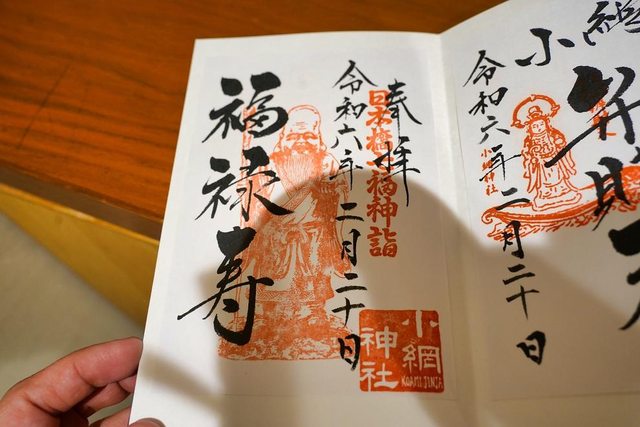 小
弁財天
令和六年二月二十日
小網神社
奉拝
日本橋七福神詣
令和六年二月二十日
福禄寿
小網
神社
KOAMI JINJA